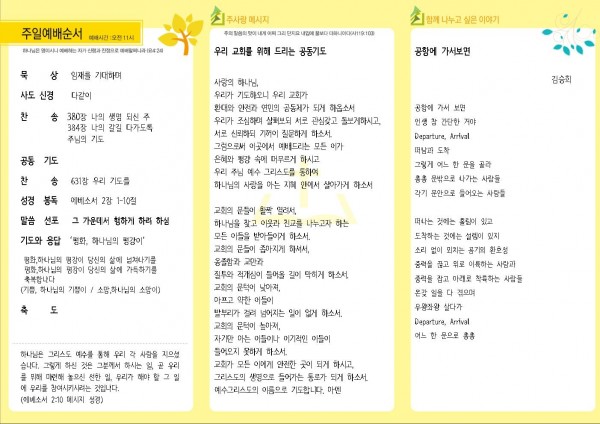 주일예배순서 예배시간 : 오전 11시
하나님은 영이시니 예배하는 자가 신령과 진정으로 예배할찌니라 (요4:24)
묵 상 임재를 기대하며
사도 신경 다같이
찬 송 380장 나의 생명 되신 주
384장 나의 갈길 다가도록
주님의 기도
공동 기도
찬 송 631장 우리 기도를
성경 봉독 에베소서 2장 1-10절
말씀 선포 그 가운데서 행하게 하려 하심
기도와 응답 '평화, 하나님의 평강이'
평화,하나님의 평강이 당신의 삶에 넘쳐나기를
평화,하나님의 평강이 당신의 삶에 가득하기를
축복합니다
(기쁨, 하나님의 기쁨이 / 소망,하나님의 소망이)
축 도
하나님은 그리스도 예수를 통해 우리 각 사람을 지으셨
습니다. 그렇게 하신 것은 그분께서 하시는 일, 곧 우리
를 위해 마련해 놓으신 선한 일, 우리가 해야 할 그 일
에 우리를 참여시키시려는 것입니다.
(에베소서 2:10 메시지 성경)
주사랑 메시지
주의 말씀의 맛이 내게 어찌 그리 단지요 내입에 꿀보다 더하니이다(시119:103)
우리 교회를 위해 드리는 공동기도
사랑의 하나님,
우리가 기도하오니 우리 교회가
환대와 안전과 연민의 공동체가 되게 하옵소서
우리가 조심하며 살펴보되 서로 관심갖고 돌보게하시고,
서로 신뢰하되 기꺼이 질문하게 하소서.
그럼으로써 이곳에서 예배드리는 모든 이가
은혜와 평강 속에 머무르게 하시고
우리 주님 예수 그리스도를 통하여
하나님의 사랑을 아는 지혜 안에서 살아가게 하소서
교회의 문들이 활짝 열려서,
하나님을 찾고 이웃과 친교를 나누고자 하는
모든 이들을 받아들이게 하소서.
교회의 문들이 좁아지게 하셔서,
옹졸함과 교만과
질투와 적개심이 들어올 길이 막히게 하소서.
교회의 문턱이 낮아져,
아프고 약한 이들이
발부리가 걸려 넘어지는 일이 없게 하소서.
교회의 문턱이 높아져,
자기만 아는 이들이나 이기적인 이들이
들어오지 못하게 하소서.
교회가 모든 이에게 안전한 곳이 되게 하시고,
그리스도의 생명으로 들어가는 통로가 되게 하소서.
예수그리스도의 이름으로 기도합니다. 아멘
함께 나누고 싶은 이야기
공항에 가서보면
김승희
공항에 가서 보면
인생 참 간단한 거야
Departure, Arrival
떠남과 도착
그렇게 어느 한 문을 골라
총총 문밖으로 나가는 사람들
각기 문안으로 들어오는 사람들
떠나는 것에는 홀림이 있고
도착하는 것에는 설렘이 있지
소리 없이 외치는 공기의 환호성
중력을 끊고 위로 이륙하는 사람과
중력을 잡고 아래로 착륙하는 사람들
온갖 일을 다 겪으며
우왕좌왕 살다가
Departure, Arrival
어느 한 문으로 총총